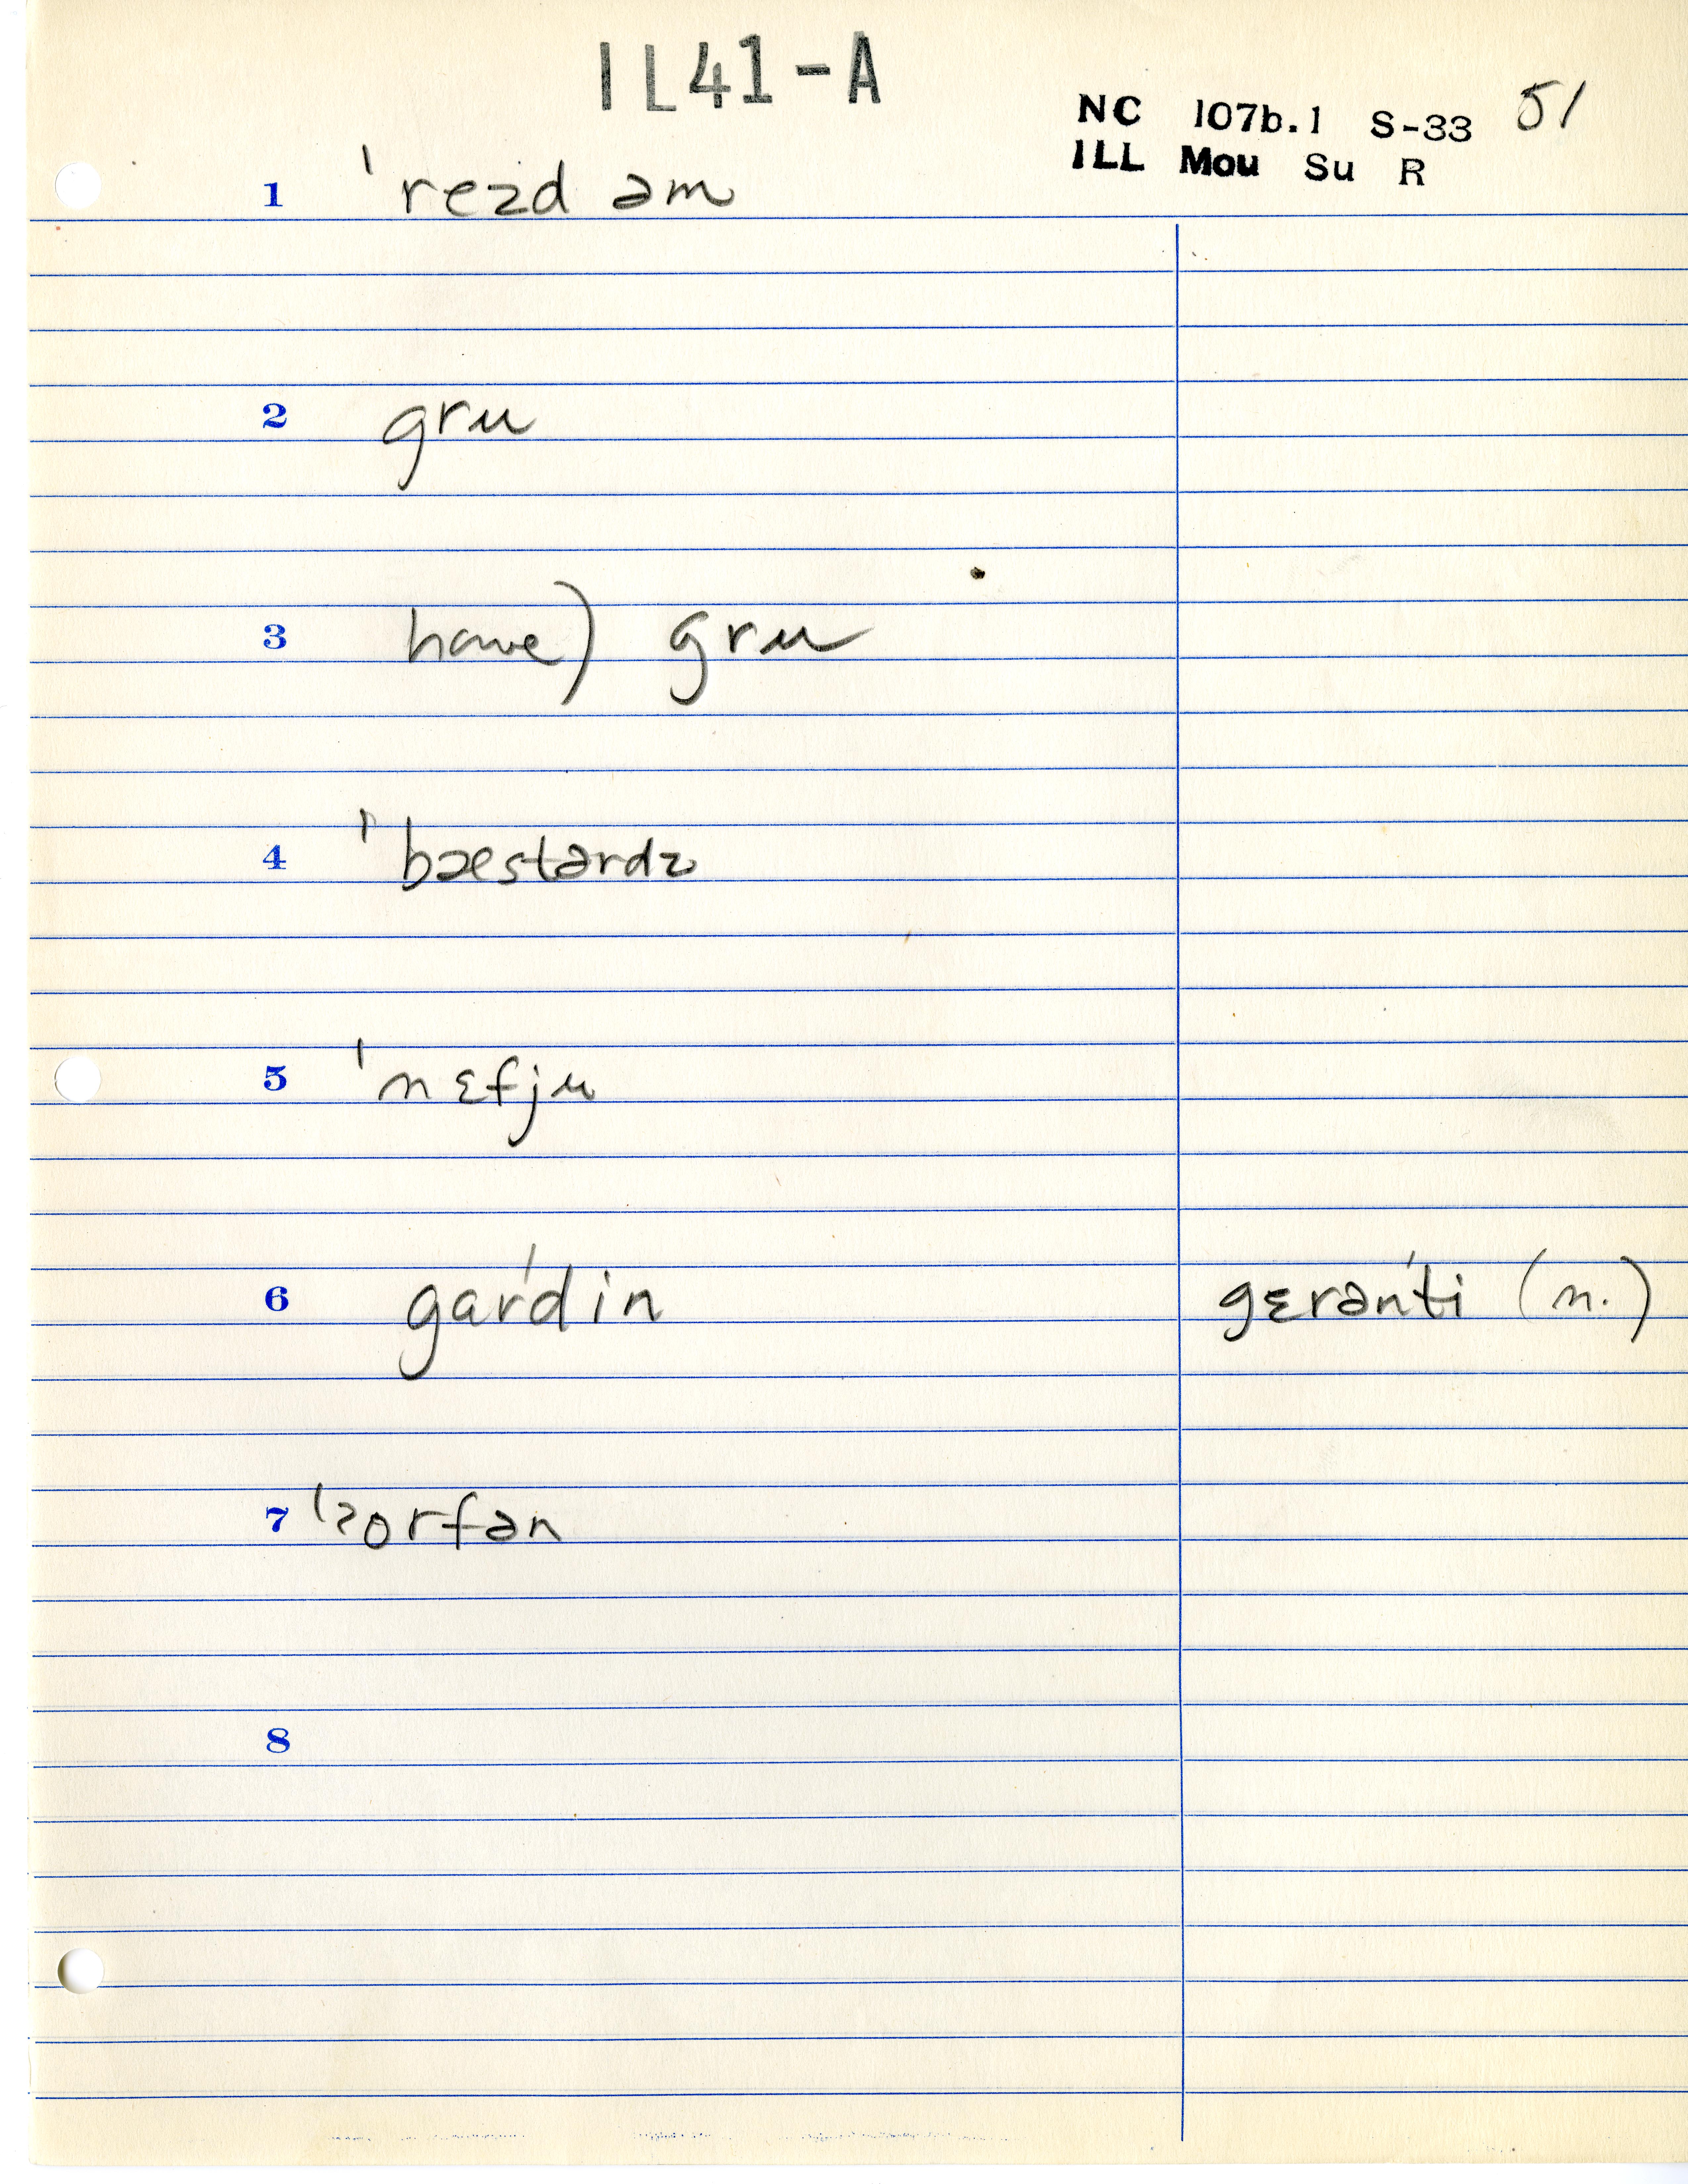 IL41-A
NC 107b.1 S-33 51
ILL Mou Su R
1 ˈrezd əm
2 gru
3 have) gru
4 ˈbæstərdz
5 ˈnɛfju
6 garˈdin gɛrənˈti (n.)
7 ˈʔorfən
8